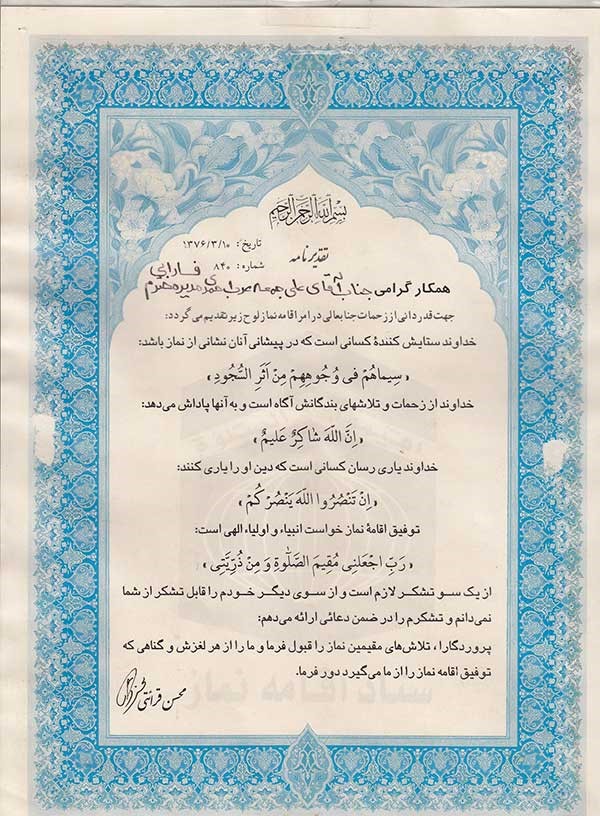 بسم الله الرحمن الرحیم
تاریخ: ۱۳۷۶/۳/۱۰
تقدیرنامه
شماره: ۸۴۰
همکار گرامی جناب آقای علی جمعه مدیر محترم فارابی
جهت قدردانی از زحمات جنابعالی در امر اقامه نماز لوح زیر تقدیم می گردد:
خداوند ستایش کنندهٔ کسانی است که در پیشانی آنان نشانی از نماز باشد:
«سیماهُمْ فی وُجُوهِهِمْ مِنْ اَثَرِ السُّجُودِ»
خداوند از زحمات و تلاشهای بندگانش آگاه است و به آنها پاداش می‌دهد:
«اِنَّ اللهَ شاکِرٌ عَلیمٌ»
خداوند یاری رسان کسانی است که دین او را یاری کنند:
«اِنْ تَنْصُرُوا اللهَ یَنْصُرْکُمْ»
توفیق اقامهٔ نماز خواست انبیاء و اولیاء الهی است:
«رَبِّ اجْعَلْنی مُقیمَ الصَّلٰوةِ وَ مِنْ ذُرِّیَّتی»
از یک سو تشکر لازم است و از سوی دیگر خودم را قابل تشکر از شما
نمی‌دانم و تشکرم را در ضمن دعائی ارائه می‌دهم:
پروردگارا، تلاش‌های مقیمین نماز را قبول فرما و ما را از هر لغزش و گناهی که
توفیق اقامه نماز را از ما می‌گیرد دور فرما.
محسن قرائتی
ستاد اقامه نماز